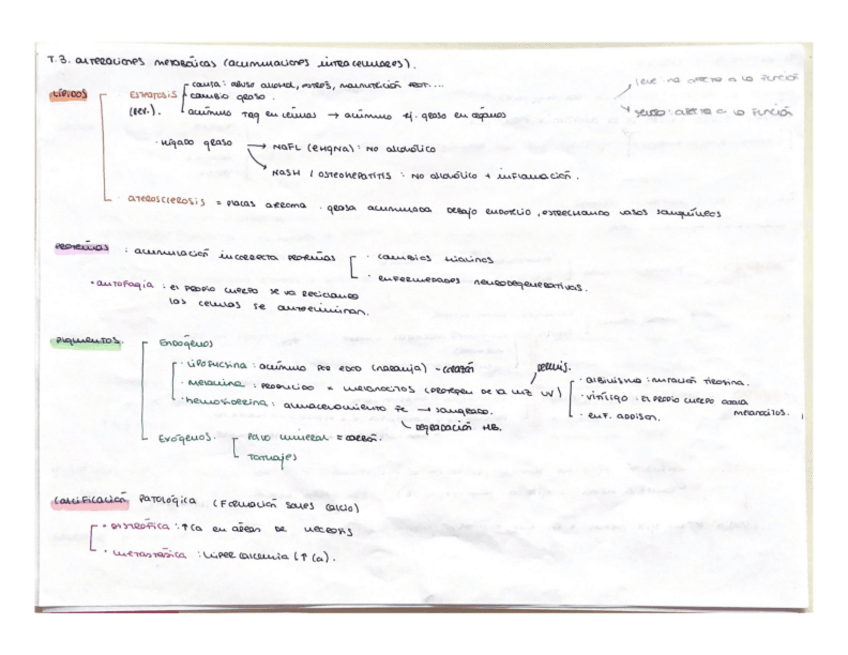 T.3. alteraciones metabólicas (acumulaciones intracelulares).
LÍPIDOS
ESTEATOSIS (rev.).
causa: abuso alcohol, estrés, malnutrición prot....
cambio graso.
acúmulo TAG en células → acúmulo tj. graso en órganos
leve: no afecta a la función
severo: afecta a la función
· hígado graso → NAFL (EHGNA): NO alcohólico
→ NASH / esteohepatitis: NO alcohólico + inflamación.
· aterosclerosis = placas ateroma · grasa acumulada debajo endotelio, estrechando vasos sanguíneos
PROTEÍNAS : acumulación incorrecta proteínas
· cambios hialinos
· enfermedades neurodegenerativas.
· autofagia : el propio cuerpo se va reciclando
las células se autoeliminan.
PIGMENTOS.
Endógenos
· lipofucsina : acúmulo por edad (naranja) - corazón
· melanina : producido x melanocitos (protegen de la luz UV)
· hemosiderina : almacenamiento Fe → sangrado.
degradación HB.
· albinismo : mutación tirosina.
· vitíligo : el propio cuerpo ataca melanocitos.
· enf. addison.
Exógenos.
Polvo mineral = carbón.
Tatuajes
Calcificación patológica (Formación sales calcio)
· distrófica : ↑Ca en áreas de necrosis
· metastásica : hipercalcemia (↑Ca).